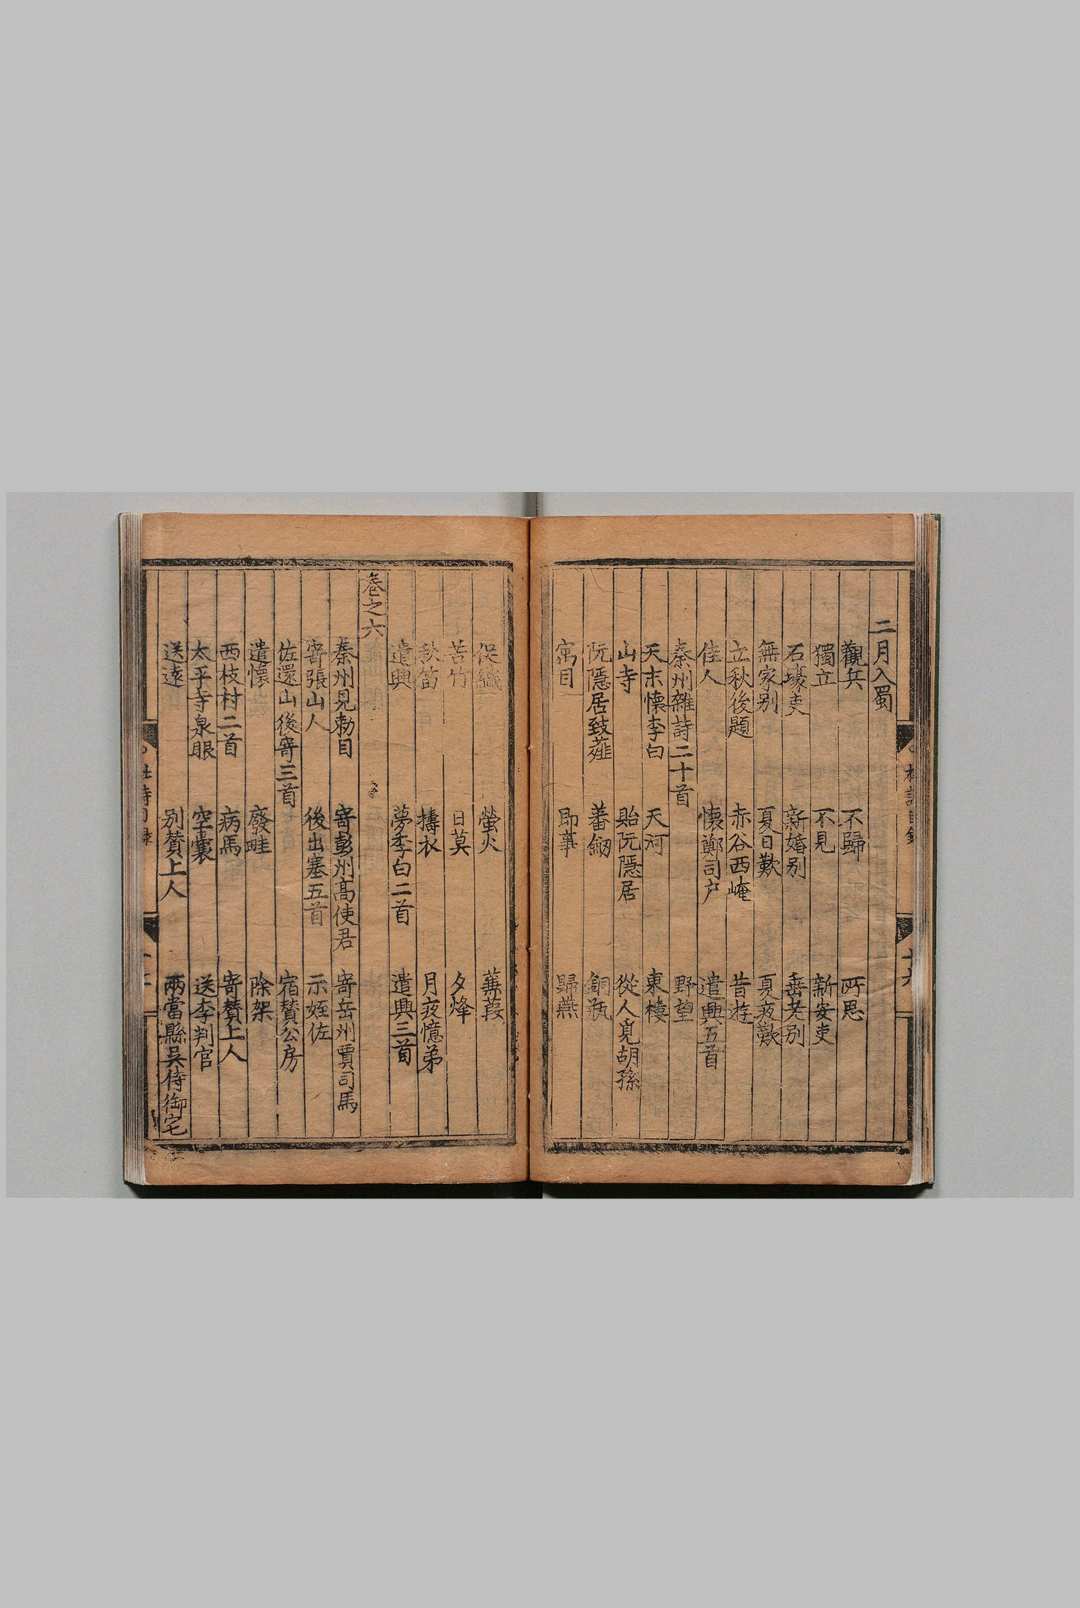 二月入蜀
觀兵 不歸 所思
獨立 不見 新安吏
石壕吏 新婚別 垂老別
無家別 夏日歎 夏夜歎
立秋後題 赤谷西崦 昔遊
佳人 懷鄭司户 遣興五首
秦州雜詩二十首 野望
天末懷李白 天河 東樓
山寺 貽阮隱居 從人覓胡孫
阮隱居致薤 蕃劒 銅瓶
寓目 即事 歸燕
促織 螢火 蒹葭
苦竹 日莫 夕烽
秋笛 擣衣 月夜憶弟
遣興 夢李白二首 遣興三首
卷之六
秦州見勑目 寄彭州高使君 寄岳州賈司馬
寄張山人 後出塞五首 示姪佐
佐還山後寄三首 宿贊公房
遣懷 廢畦 除架
西枝村二首 病馬 寄贊上人
太平寺泉眼 空囊 送李判官
送遠 別贊上人 兩當縣吳侍御宅
杜詩目錄